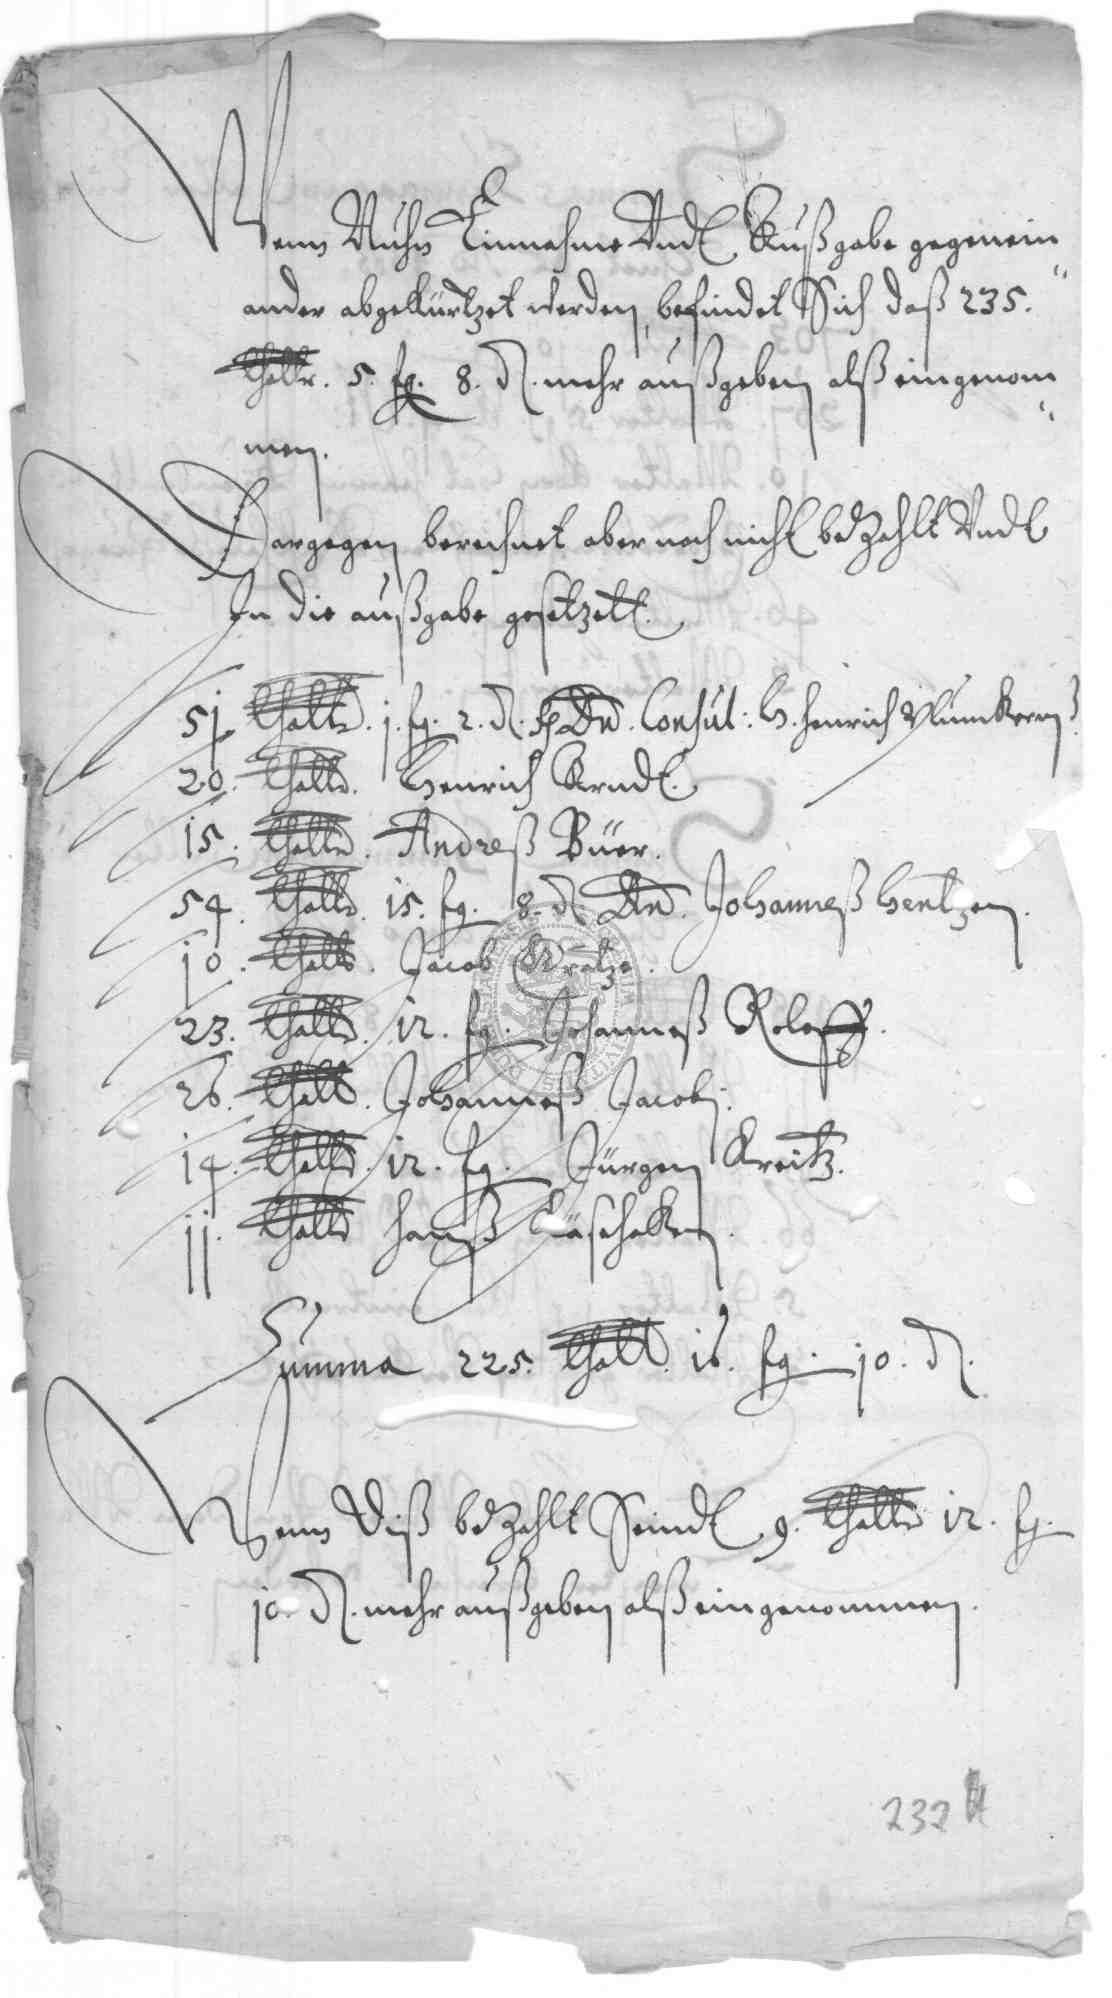 Wenn Nuhn Einnahme Vndt Außgabe gegenein
ander abgekürtzet werden, befindet Sich daß 235.
thalr. 5. fg. 8. d. mehr außgeben alß eingenom
men.
Dargegen berechnet aber noch nicht bezahlt Vndt
In die außgabe gesetzet.
51 thaler. 1. fg. 2. d. Dn. Consul: H. Henrich Plumkern
20. thaler. Henrich Arndt.
15. thaler. Andreß Büer.
54. thaler. 15. fg. 8. d Dn. Johanneß Hentzen.
10. thaler. Jacob Kratze.
23. thaler. 12. fg. Johanneß Roleff.
26. thaler. Johanneß Jacobj.
14. thaler. 12. fg. Jürgen Kreitz.
11. thaler Hanß
Summa 225. thaler. 16. fg. 10. d.
Wenn Diß bezahlt Seindt 9. thaler 12. fg.
10. d. mehr außgeben alß eingenommen.
232